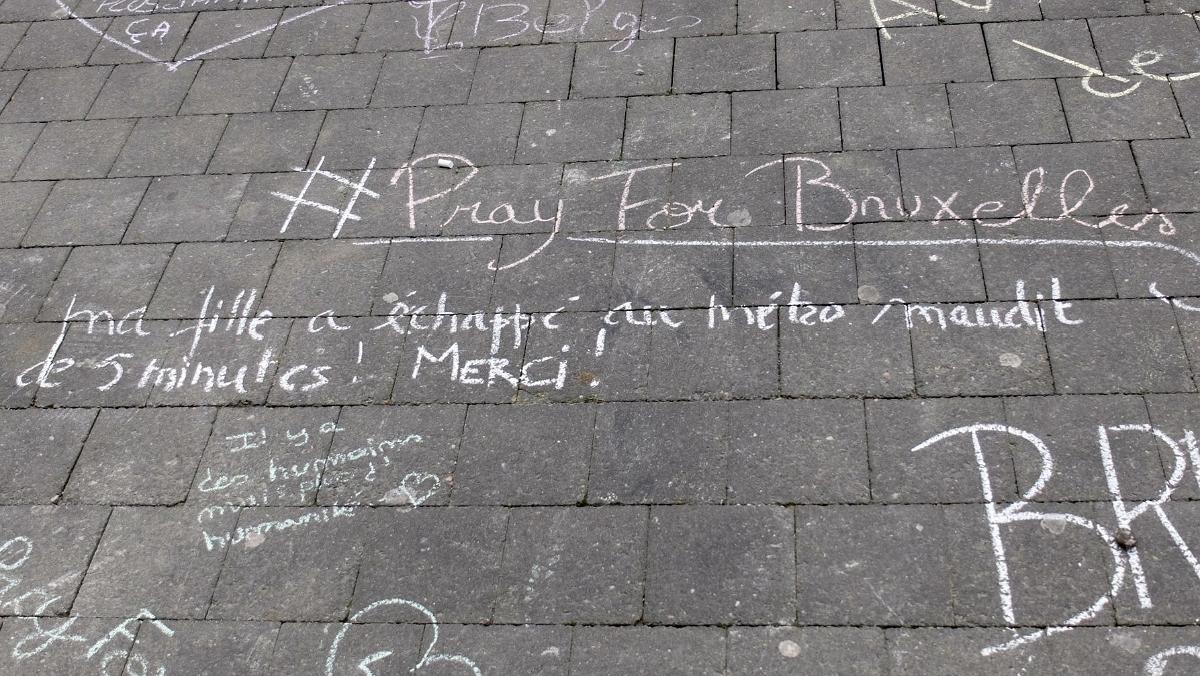 ÇA
Belges
# Pray For Bruxelles
ma fille a échappé au métro maudit
de 5 minutes ! MERCI !
Il y a
des humains
mais plus d'
humanité
BR